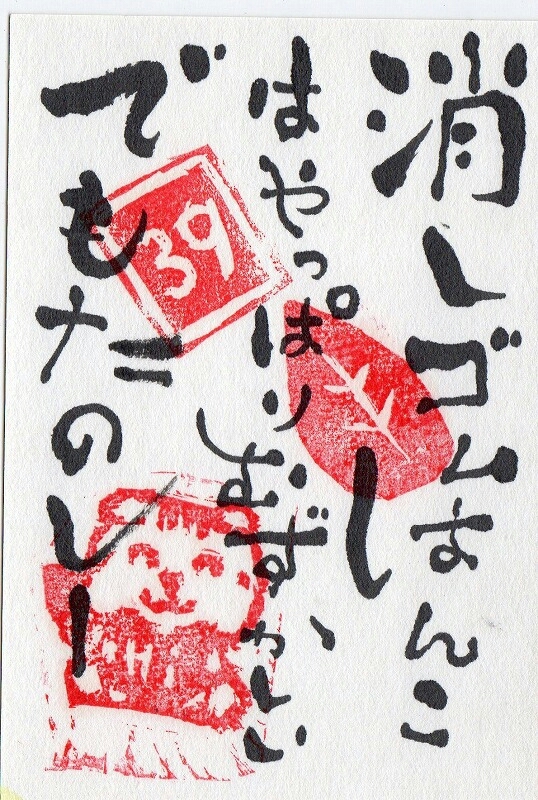 消しゴムはんこ
はやっぱりむずかしい
でもたのしー
39